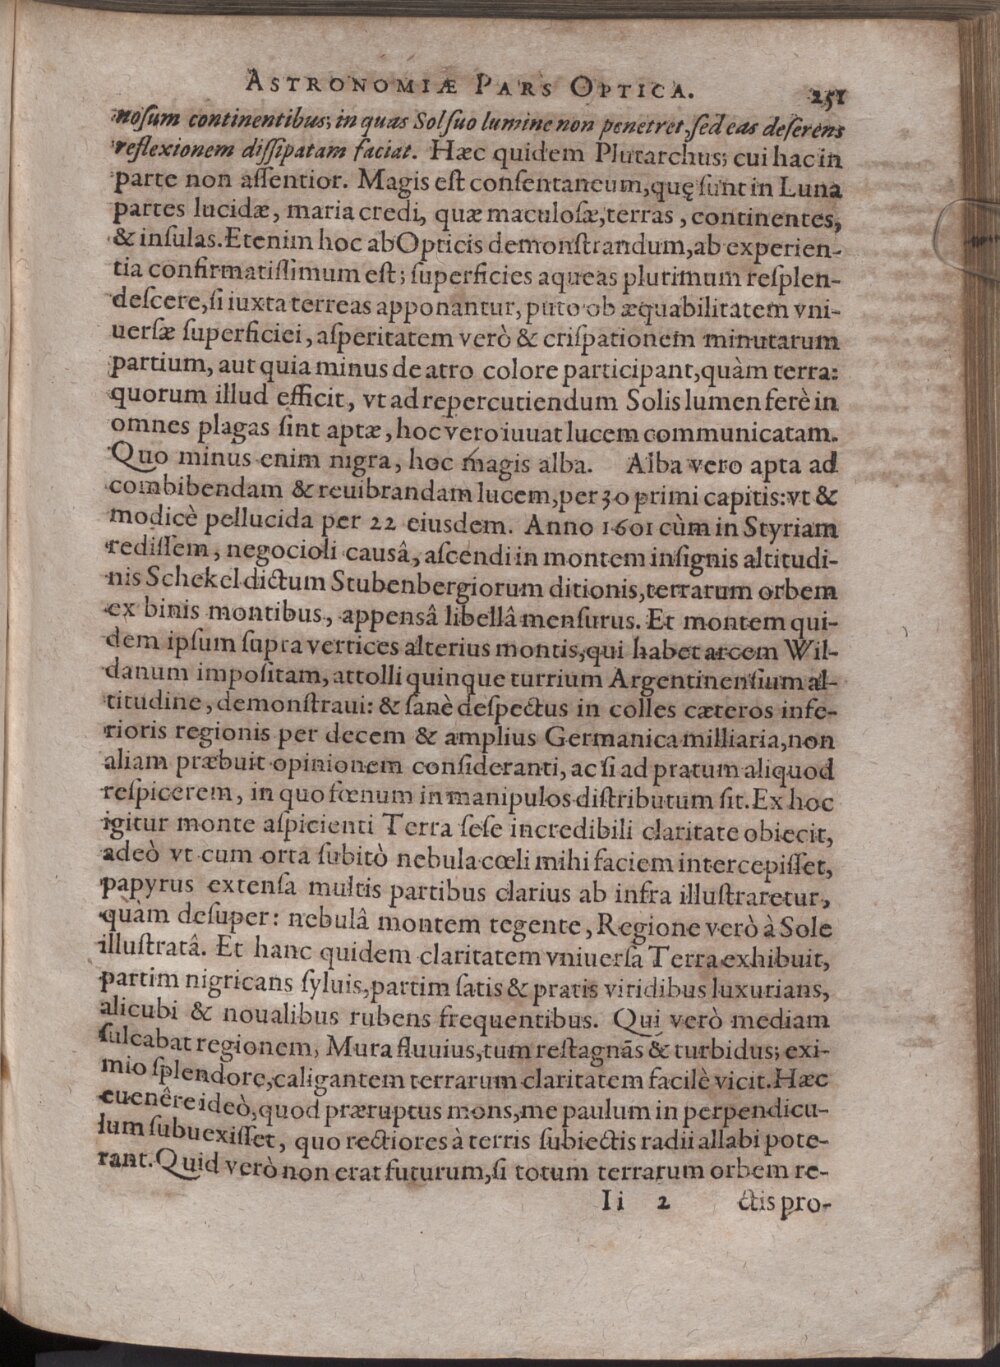 ASTRONOMIÆ PARS OPTICA. 251
noſum continentibus; in quas Sol ſuo lumine non penetret, ſed eas deſerens
reflexionem diſſipatam faciat. Hæc quidem Plutarchus; cui hac in
parte non aſſentior. Magis eſt conſentaneum, quę ſunt in Luna
partes lucidæ, maria credi, quæ maculoſæ, terras, continentes,
& inſulas. Etenim hoc ab Opticis demonſtrandum, ab experien-
tia confirmatiſſimum eſt; ſuperficies aqueas plurimum reſplen-
deſcere, ſi iuxta terreas apponantur, puto ob æquabilitatem vni-
uerſæ ſuperficiei, aſperitatem verò & criſpationem minutarum
partium, aut quia minus de atro colore participant, quàm terra:
quorum illud efficit, vt ad repercutiendum Solis lumen ferè in
omnes plagas ſint aptæ, hoc vero iuuat lucem communicatam.
Quo minus enim nigra, hoc magis alba. Alba vero apta ad
combibendam & reuibrandam lucem, per 30 primi capitis: vt &
modicè pellucida per 22 eiusdem. Anno 1601 cùm in Styriam
rediſſem, negocioli causâ, aſcendi in montem inſignis altitudi-
nis Schekel dictum Stubenbergiorum ditionis, terrarum orbem
ex binis montibus, appensâ libellâ menſurus. Et montem qui-
dem ipſum ſupra vertices alterius montis, qui habet arcem Wil-
danum impoſitam, attolli quinque turrium Argentinenſium al-
titudine, demonſtraui: & ſanè deſpectus in colles cæteros infe-
rioris regionis per decem & amplius Germanica milliaria, non
aliam præbuit opinionem conſideranti, ac ſi ad pratum aliquod
reſpicerem, in quo fœnum in manipulos diſtributum ſit. Ex hoc
igitur monte aſpicienti Terra ſeſe incredibili claritate obiecit,
adeò vt cum orta ſubitò nebula cœli mihi faciem intercepiſſet,
papyrus extenſa multis partibus clarius ab infra illuſtraretur,
quàm deſuper: nebulâ montem tegente, Regione verò à Sole
illuſtratâ. Et hanc quidem claritatem vniuerſa Terra exhibuit,
partim nigricans ſyluis, partim ſatis & pratis viridibus luxurians,
alicubi & noualibus rubens frequentibus. Qui verò mediam
ſulcabat regionem, Mura fluuius, tum reſtagnãs & turbidus; exi-
mio ſplendore, caligantem terrarum claritatem facilè vicit. Hæc
euenêre ideò, quod præruptus mons, me paulum in perpendicu-
lum ſubuexiſſet, quo rectiores à terris ſubiectis radii allabi pote-
rant. Quid verò non erat futurum, ſi totum terrarum orbem re-
Ii 2 ctis pro-